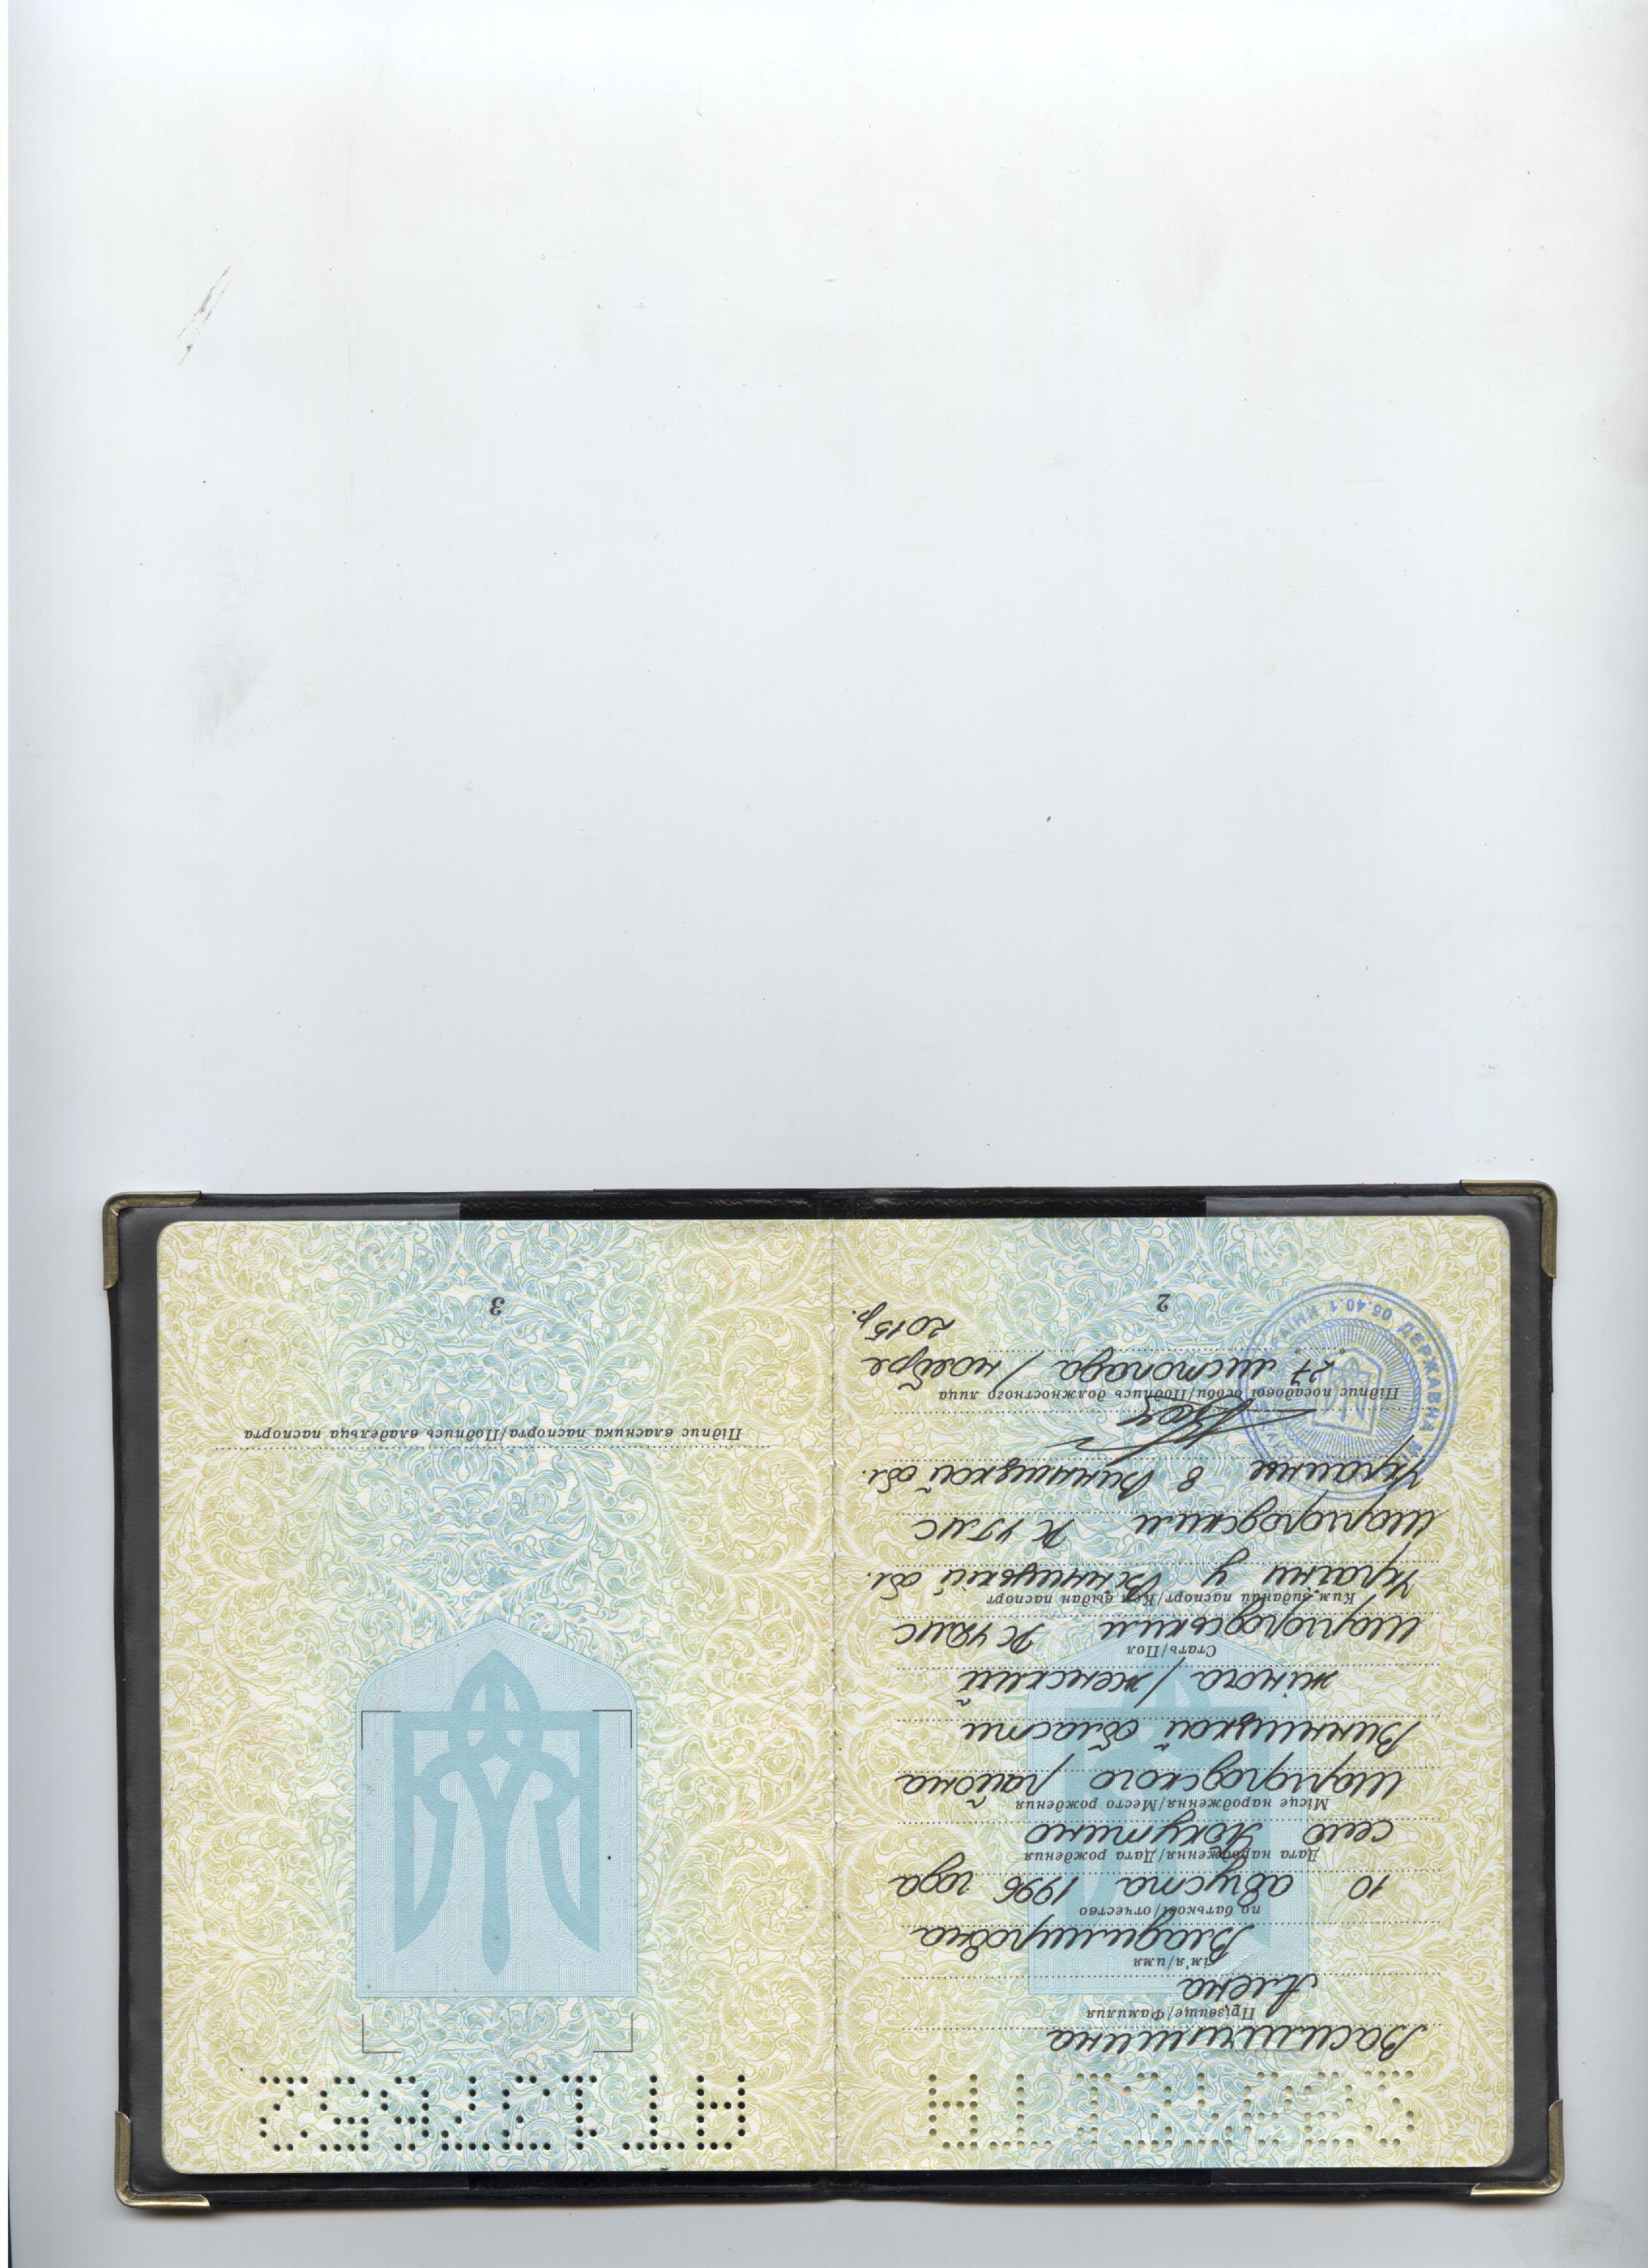 Василишина
Прізвище/Фамилия
Алена
ім'я/имя
Владимировна
по батькові/отчество
10 августа 1996 года
Дата народження/Дата рождения
село Покутино
Місце народження/Место рождения
Шаргородского района
Винницкой области
жіноча / женский
Стать/Пол
Шаргородським
Ким виданий паспорт/Кем выдан паспорт
України у Вінницькій обл.
Шаргородским
Украины в Винницкой обл.
Підпис посадової особи/Подпись должностного лица
"27" листопада / ноября
2015 р.
2
05.40.1 ДЕРЖАВНА
Підпис власника паспорта/Подпись владельца паспорта
3